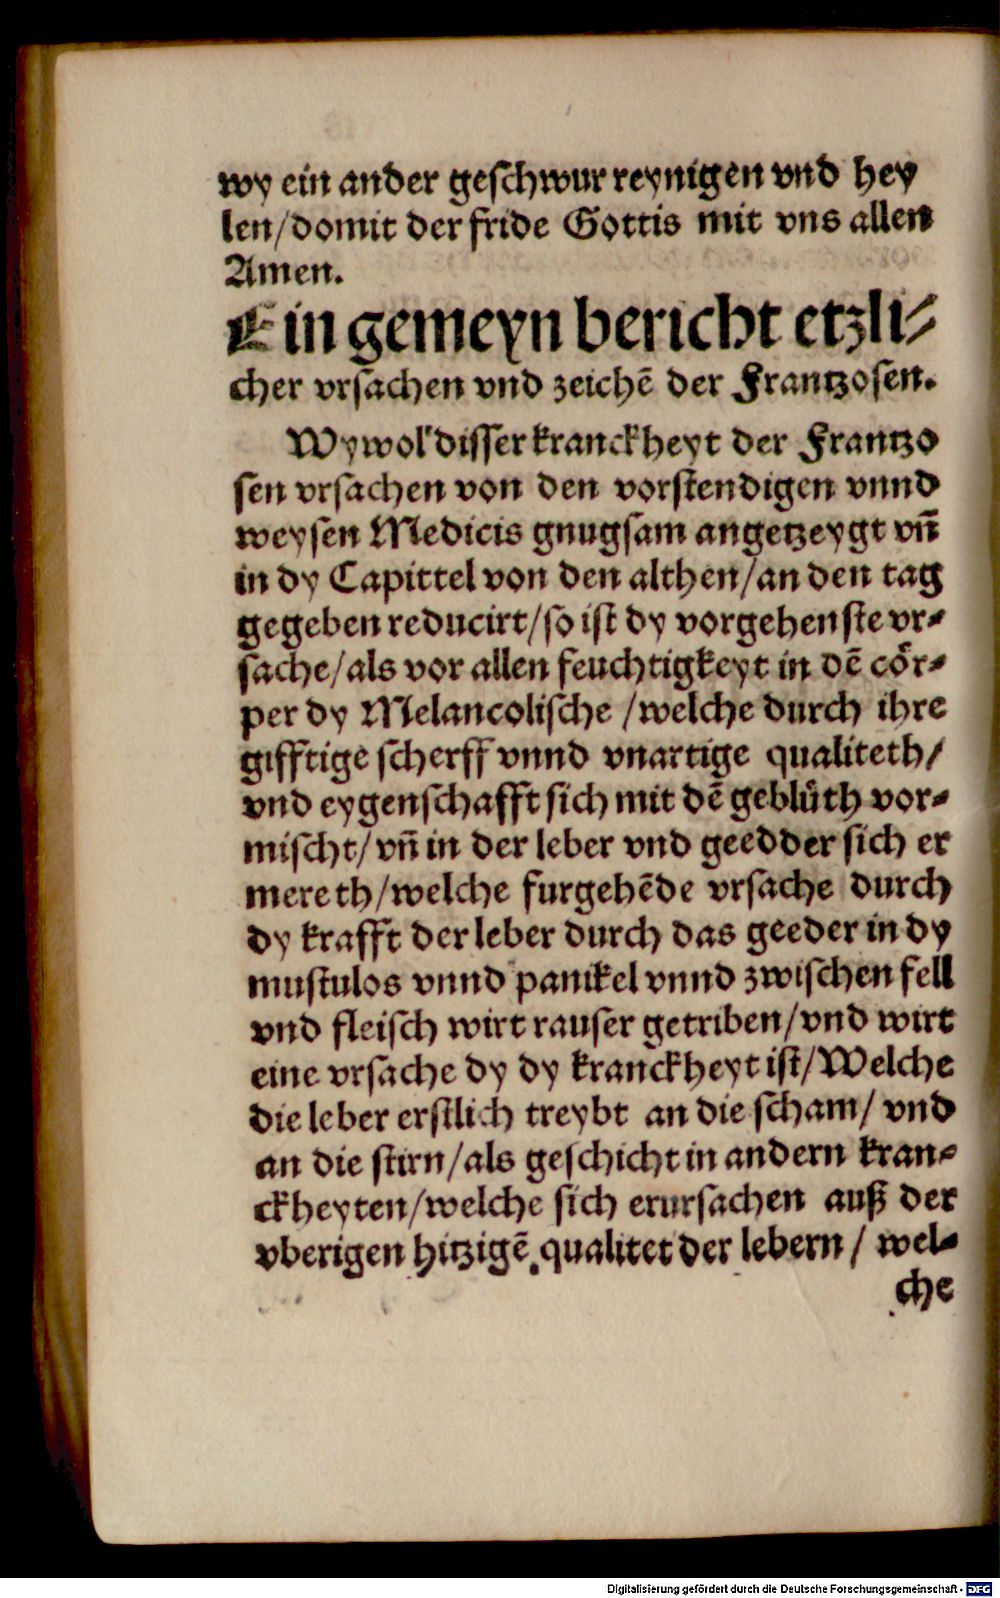 wy ein ander geſchwur reynigen vnd hey
len/domit der fride Gottis mit vns allen
Amen.
Ein gemeyn bericht etzli⸗
cher vrſachen vnd zeichē der Frantzoſen.
Wywol diſſer kranckheyt der Frantzo
ſen vrſachen von den vorſtendigen vnnd
weyſen Medicis gnugſam angetzeygt vn̄
in dy Capittel von den althen/an den tag
gegeben reducirt/ſo iſt dy vorgehenſte vr⸗
ſache/als vor allen feuchtigkeyt in dē coͤr⸗
per dy Melancoliſche /welche durch ihre
gifftige ſcherff vnnd vnartige qualiteth/
vnd eygenſchafft ſich mit dē gebluͤth vor⸗
miſcht/vn̄ in der leber vnd geedder ſich er
mereth/welche furgehēde vrſache durch
dy krafft der leber durch das geeder in dy
muſtulos vnnd panikel vnnd zwiſchen fell
vnd fleiſch wirt rauſer getriben/vnd wirt
eine vrſache dy dy kranckheyt iſt/Welche
die leber erſtlich treybt an die ſcham/ vnd
an die ſtirn/als geſchicht in andern kran⸗
ckheyten/welche ſich erurſachen auß der
vberigen hitzigē qualitet der lebern/ wel⸗
che
Digitalisierung gefördert durch die Deutsche Forschungsgemeinschaft - DFG